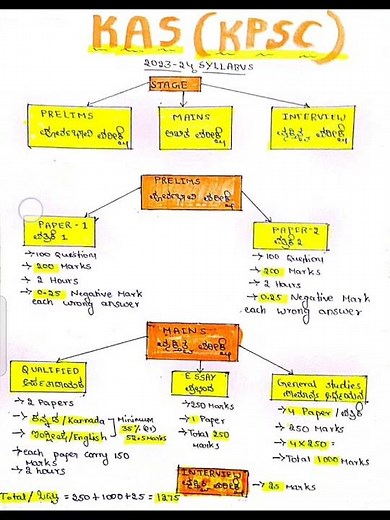 KAS (KPSC)
2023-24 SYLLABUS
STAGE
PRELIMS
MAINS
INTERVIEW
PRELIMS
PAPER-1
ಪತ್ರಿಕೆ 1
→ 100 Questions
→ 200 Marks
→ 2 Hours
→ 0.25 Negative Mark
each wrong answer
PAPER-2
ಪತ್ರಿಕೆ 2
→ 100 Question
→ 200 Marks
→ 2 Hours
→ 0.25 Negative Mark
each wrong answer
MAINS
QUALIFIED
→ 2 Papers
→ ಕನ್ನಡ/Kannada
→ ಇಂಗ್ಲೀಷ್/English
Minimum
35%
52.5 Marks
→ each paper carry 150
Marks
→ 2 hours
ESSAY
ಪ್ರಬಂಧ
→ 250 Marks
→ 1 Paper
→ Total 250
Marks
General studies
→ 4 Paper/ಪತ್ರಿಕೆ
→ 250 Marks
→ 4×250 =
→ Total 1000 Marks
INTERVIEW
→ 25 Marks
Total/ಒಟ್ಟು = 250+1000+25 = 1275